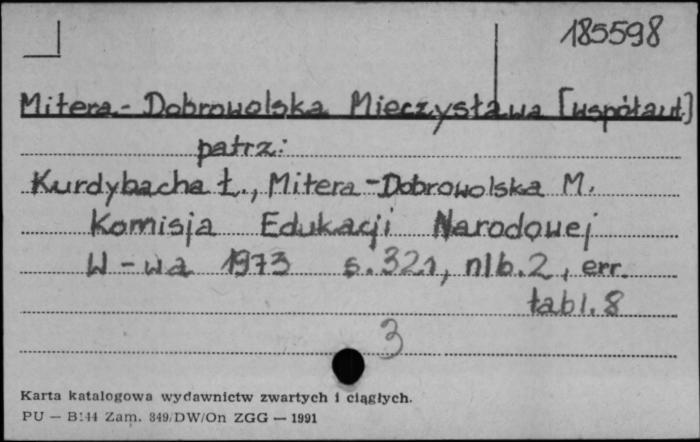 185598
Mitera-Dobrowolska Mieczysława [współaut.]
patrz:
Kurdybacha Ł., Mitera-Dobrowolska M.
Komisja Edukacji Narodowej
W-wa 1973 s. 321, nlb. 2, err.
tabl. 8
3
Karta katalogowa wydawnictw zwartych i ciągłych.
PU — B144 Zam. 849/DW/On ZGG — 1991